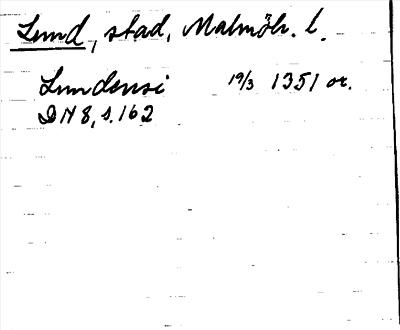 Lund, stad, Malmöh. l.
Lundensi 19/3 1351 or.
DN 8, s. 162